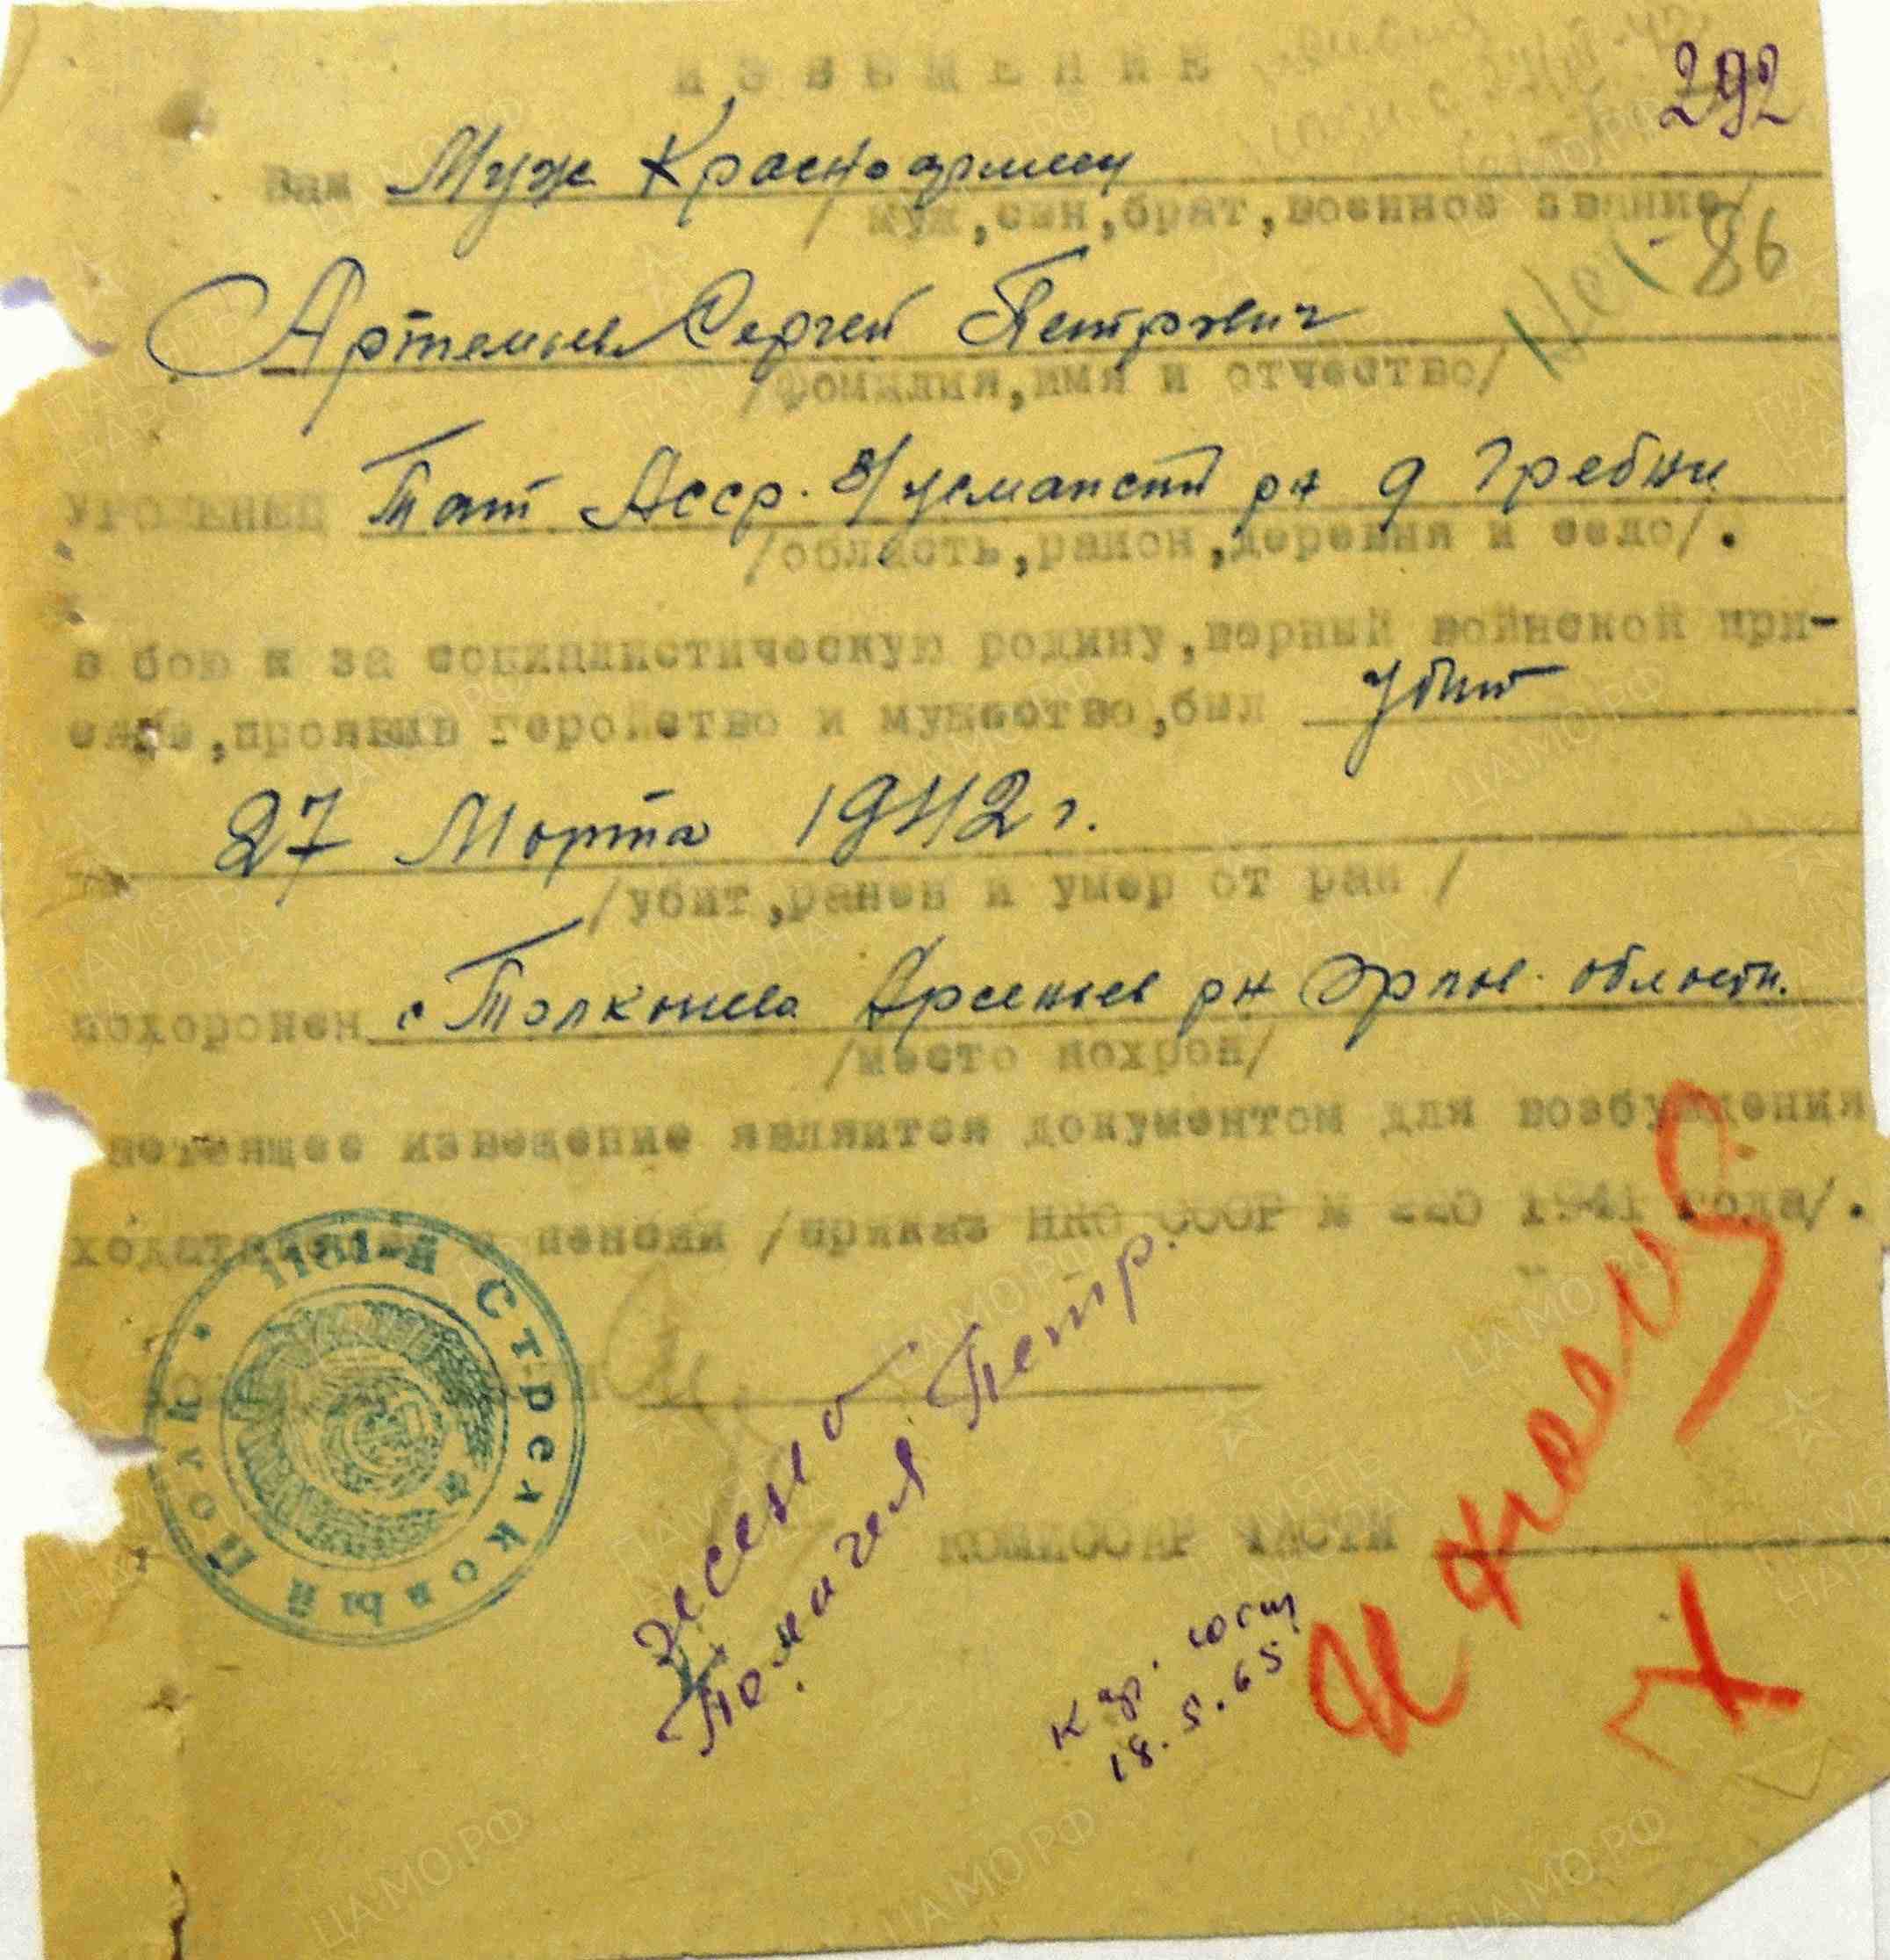 ИЗВЕЩЕНИЕ
292
Ваш Муж Красноармеец
/муж,сын,брат,военное звание/
86
Артемьев Сергей Петрович
/фомилия,имя и отчество/
УРОЖЕНЕЦ Тат Асср. В/усманский рн д Гребни
/область,район,деревня и село/.
в бою и за социалистическую родину,верный войнской при-
сяге,проявив геройство и мужество,был убит
27 Марта 1942 г.
/убит,ранен и умер от ран /
похоронен с Толкачева Арсеньев рн Орлов. области.
/место похрон/
настоящее изведение является документом для возбуждения
пенсии /приказ НКО СССР № 220 1941 года/.
1181-й Стрелковый Полк
КОМИССАР ЧАСТИ
жено
Петр.
18.5.65